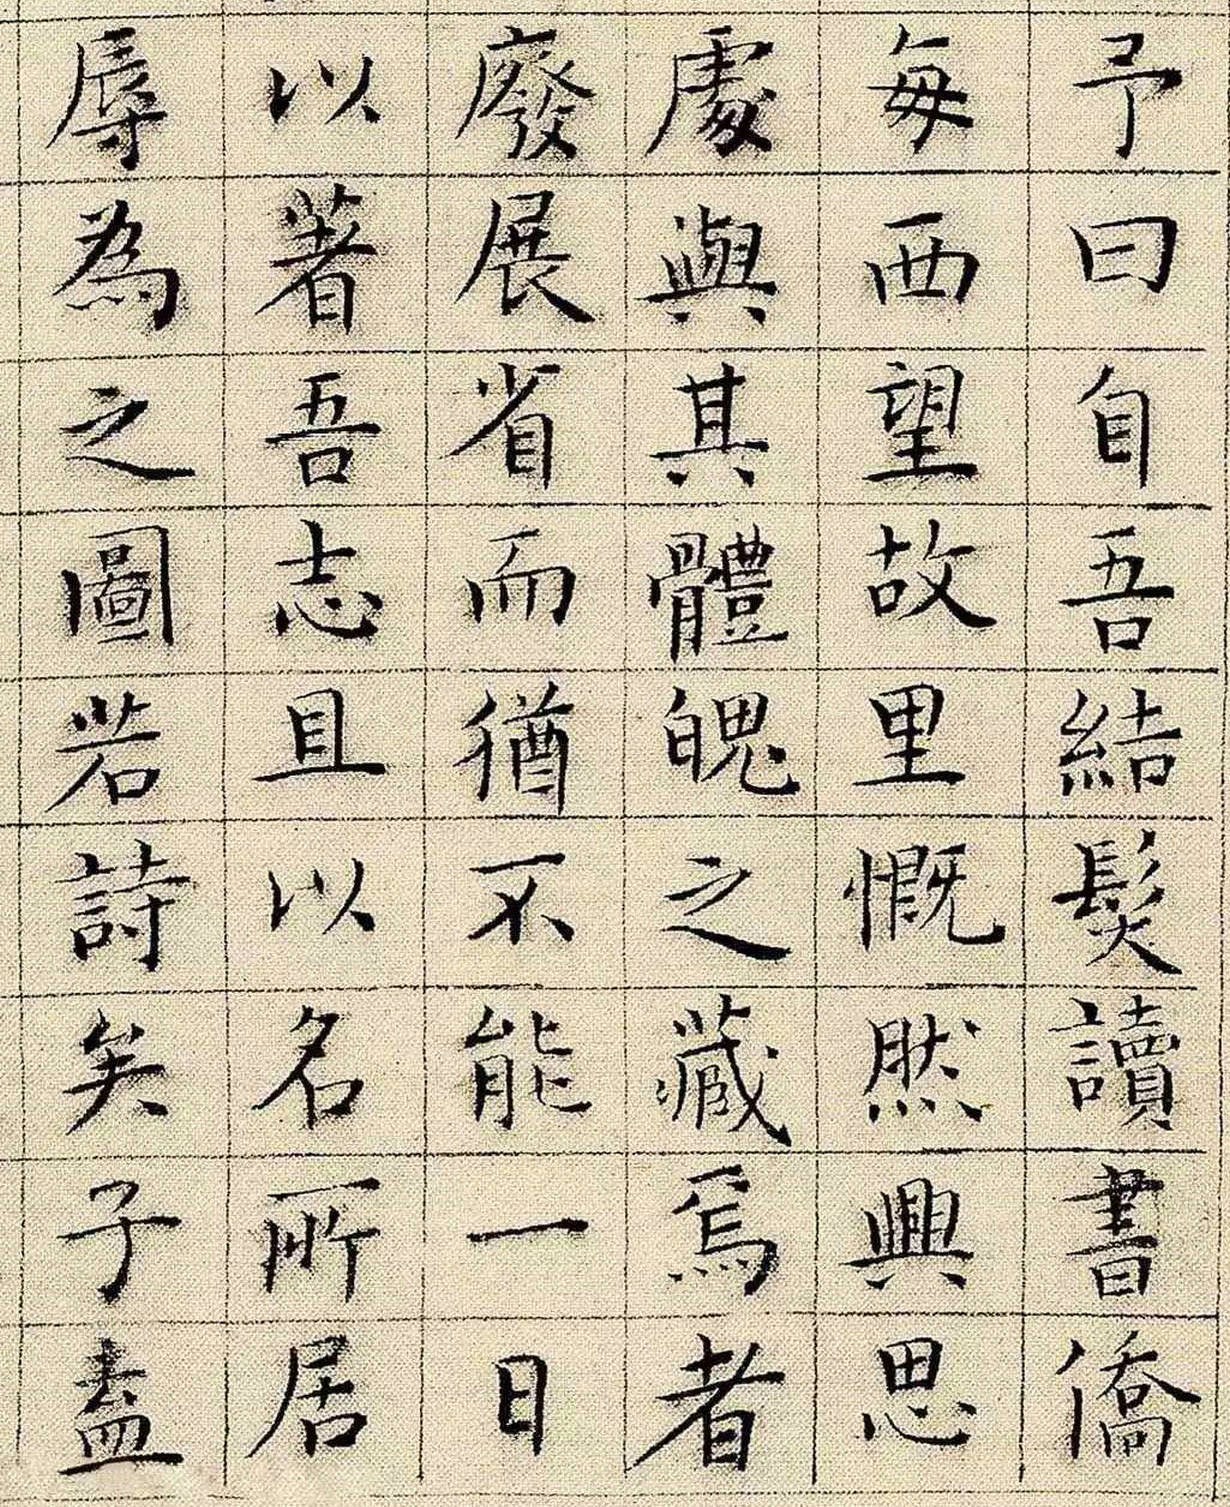 予曰自吾結髮讀書僑
每西望故里慨然興思
處與其體魄之藏焉者
廢展省而猶不能一日
以著吾志且以名所居
辱為之圖若詩矣子盍